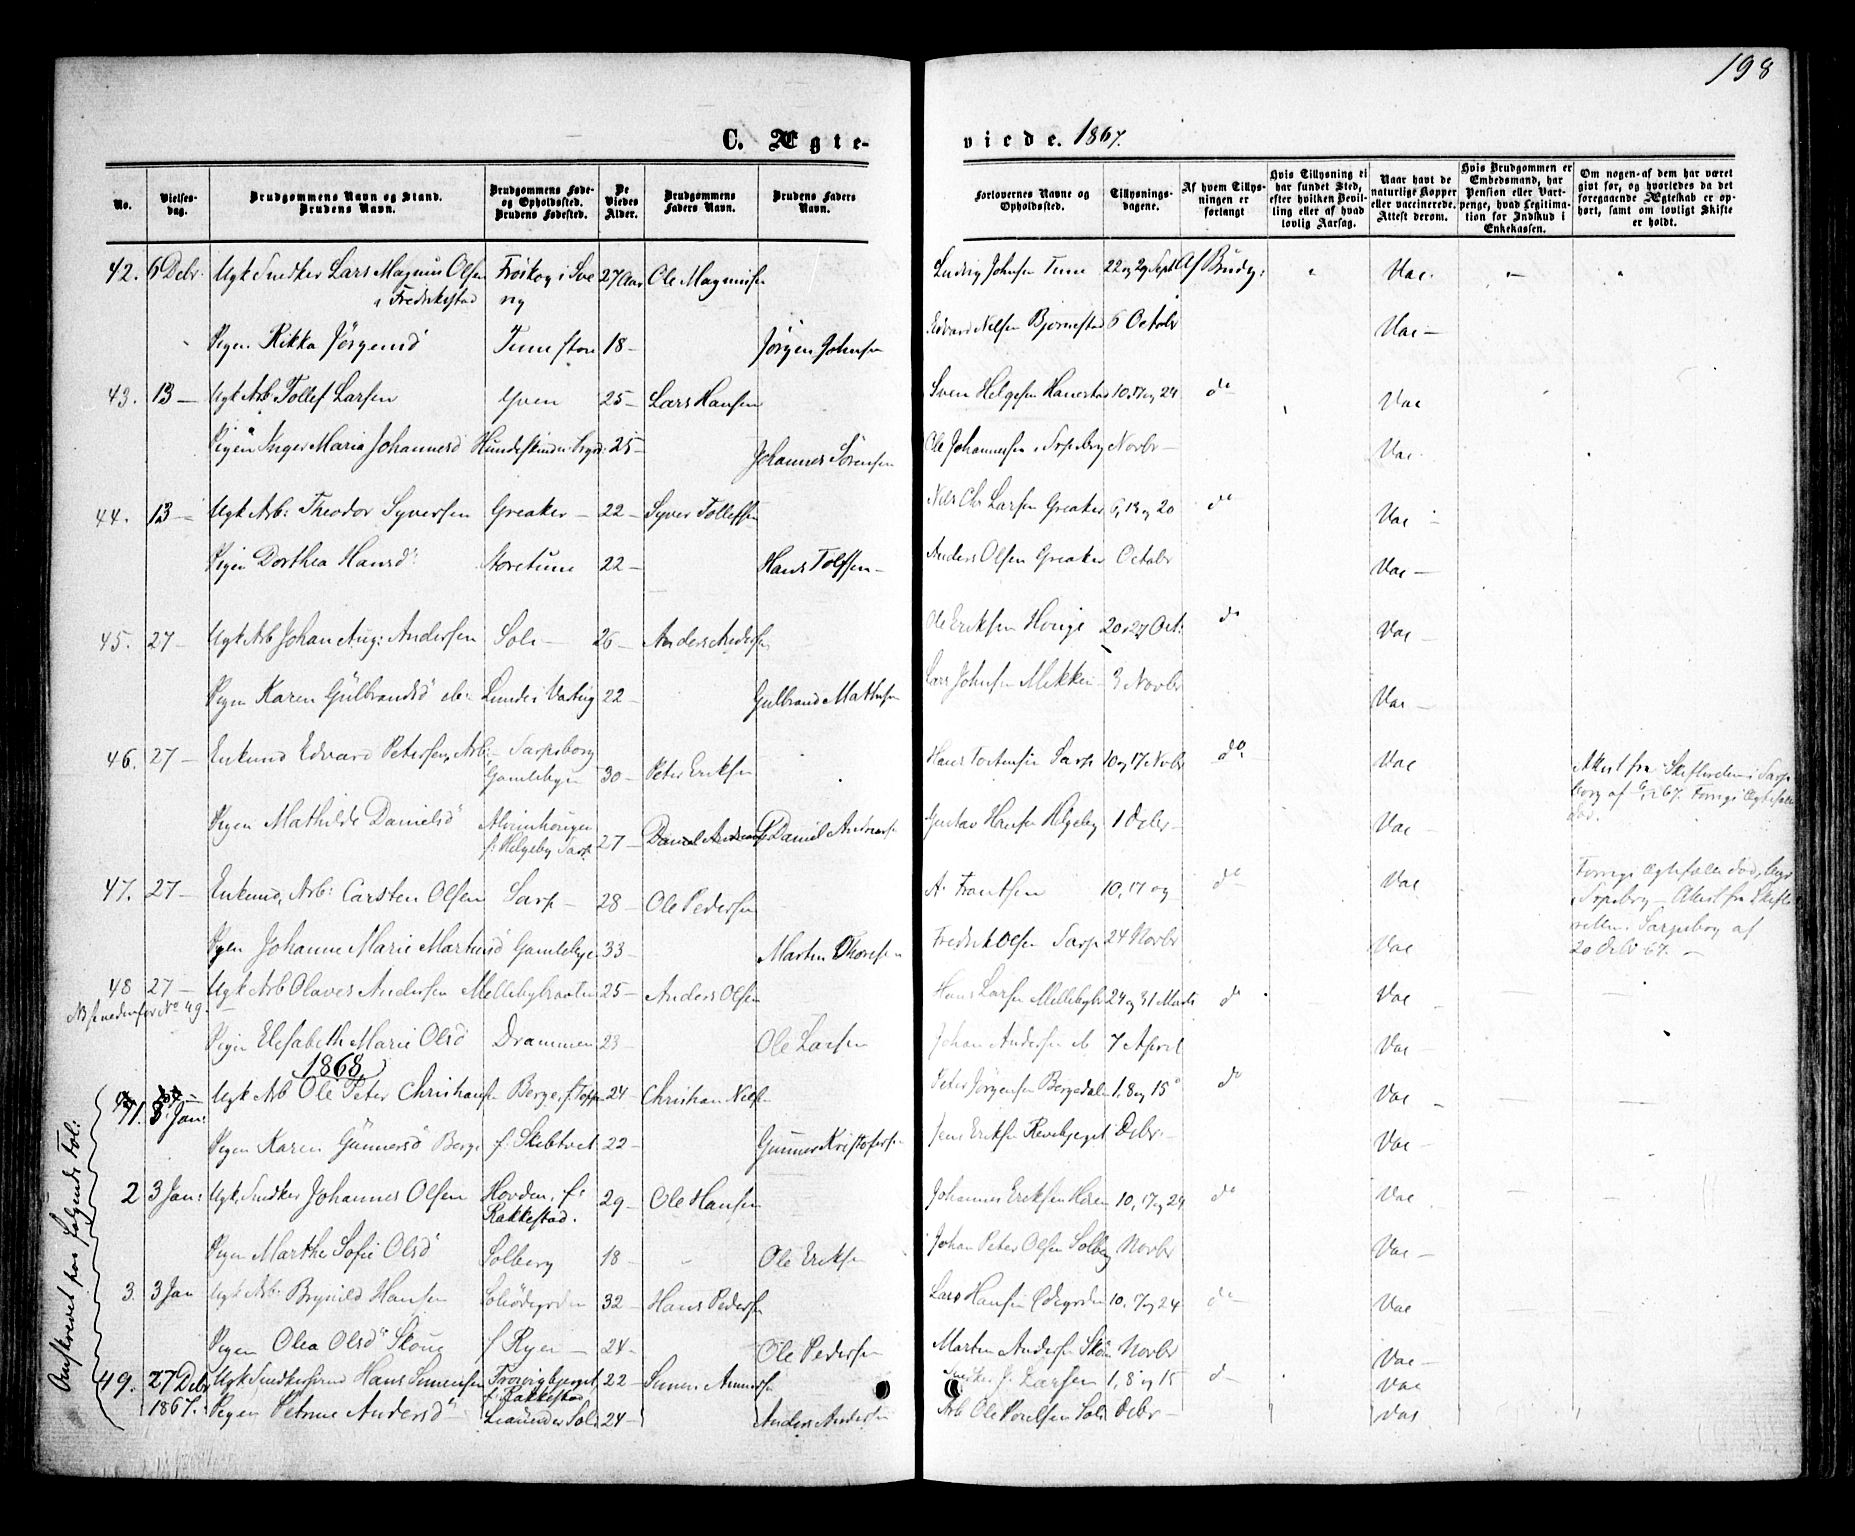 198
C. Ægte-
viede. 1867.
No. Vielses-dag. Brudgommens Navn og Stand. Brudens Navn. Brudgommens Føde- og Opholdssted. Brudens Fødested. De Viedes Alder. Brudgommens Faders Navn. Brudens Faders Navn. Forlovernes Navne og Opholdssted. Tillysnings-dagene. Af hvem Tillys-ningen er forlangt Hvis Tillysning ei har fundet Sted, efter hvilken Bevil-ling eller af hvad lovlig Aarsag. Naar havt de naturlige Kopper eller vaccinerede. Attest derom. Hvis Brudgommen er Embedsmand, har Pension eller Vart-penge, hvad Legitima-tion for Indskud i Enkekassen. Om nogen af dem har været givt før, og hvorledes da det foregaaende Ægteskab er op-hørt, samt om lovligt Skifte er holdt.
42. 6 Debr. Ugk Snedker Lars Magnus Olsen 27 Aar Ole Magnusen Ludvig Johnsen Tune 22 og 29 Septb Af Brudg: Vac.
i Fredrikstad
Pigen Rikka Jörgensd Tune 18 - Jörgen Johnsen Edvard Nilsen Bjørnestad 6 Octobr Vac -
43. 13 - Ugk Arb Tollef Larsen Yven 25 - Lars Hansen Sven Helgesen Hanestad 10, 17 og 24 do Vac
Pigen Inger Maria Johannesd 25 - Johannes Sörensen Ole Johannessen i Sarpsborg Novbr - Vac.
44. 13 - Ugk Arb: Theodor Syversen Greaker - 22 - Syver Tollefsen Nils Chr Larsen Greaker 6, 13 og 20 do Vac -
Pigen Dorthea Hansd Storetune 22 - Hans Tolfsen - Anders Olsen Greaker Octobr Vac -
45. 27 - Ugk Arb Johan Aug: Andersen Soli - 26 - Anders Andersen Ole Eriksen Hauge 20 27 Oct: do Vac -
Pigen Karen Gülbrandsd Lunde i Varteig 22 - Gulbrand Mathisen Lars Johnsen 3 Novbr Vac -
46. 27 - Enkmd Edvard Petersen, Arb: Sarpsborg
Gamlebyen 30 - Peter Eriksen Sarp 10 og 17 Novbr do Vac Attest fra Skifteretten i Sarps
borg af
Pigen Mathilde Danielsd 27 - Daniel Andersen Gustav Hansen Helgeby 1 Debr - Vac
f: Helgeby Sarp
47. 27 - Enkemd, Arb: Carsten Olsen Sarp - 28 - Ole Pedersen A. Frantsen 10, 17 og do Vac Forrige Ægtefælle død,
Sarpsborg - Attest fra Skifte
Pigen Johanne Marie Martinsd Gamlebyen 33 - Martin Thoresen Fredrik Olsen Sarp 24 Novbr Vac retten i Sarpsborg af
20 67. -
48 27 - Ugk Arb Olaves Andersen 25 - Anders Olsen Hans Larsen Melleby 24 og 31 Marts do Vac
NB se nedenfor No 49.
Pigen Elisabeth Marie Olsd Drammen 23 - Ole Larsen Johan Andersen 7 April Vac -
1868
1. 3 Jan: Ugk Arb Ole Peter Christiansen Berge, 24 - Christian Nilsen Peter Jörgensen Bergedalen 1, 8 og 15 do Vac -
Pigen Karen Günnersd Berge f: Skibtvet 22 - Gunner Kristofersen Jens Eriksen Debr - Vac -
2 3 Jan: Ugk. Snedker Johannes Olsen Hovden, f: 29 - Ole Hansen Johannes Eriksen 10, 17 og 24 do Vac -
Rakkestad.
Pigen Marthe Sofie Olsd Solberg 18 - Ole Eriksen Johan Peter Olsen Solberg Novbr Vac -
3. 3 Jan Ugk Arb: Brynild Hansen Soliödegården 32 - Hans Pedersen Lars Hansen Ödegården 10, 17 og 24 do Vac
Pigen Olea Olsd Skoug f Ryen - 24 - Ole Pedersen Martin Andersen Novbr Vac -
49. 27 Debr Ugk Snedkersvend Hans Simensen 22 - Simen Amundsen Snedker J. Larsen 1, 8 og 15 d - Vac
1867. f: Rakkestad
Pigen Petrine Andersd 24 - Anders Andersen Arb Ole Poulsen Soli Debr - Vac
Omskrevet paa følgende Fol: